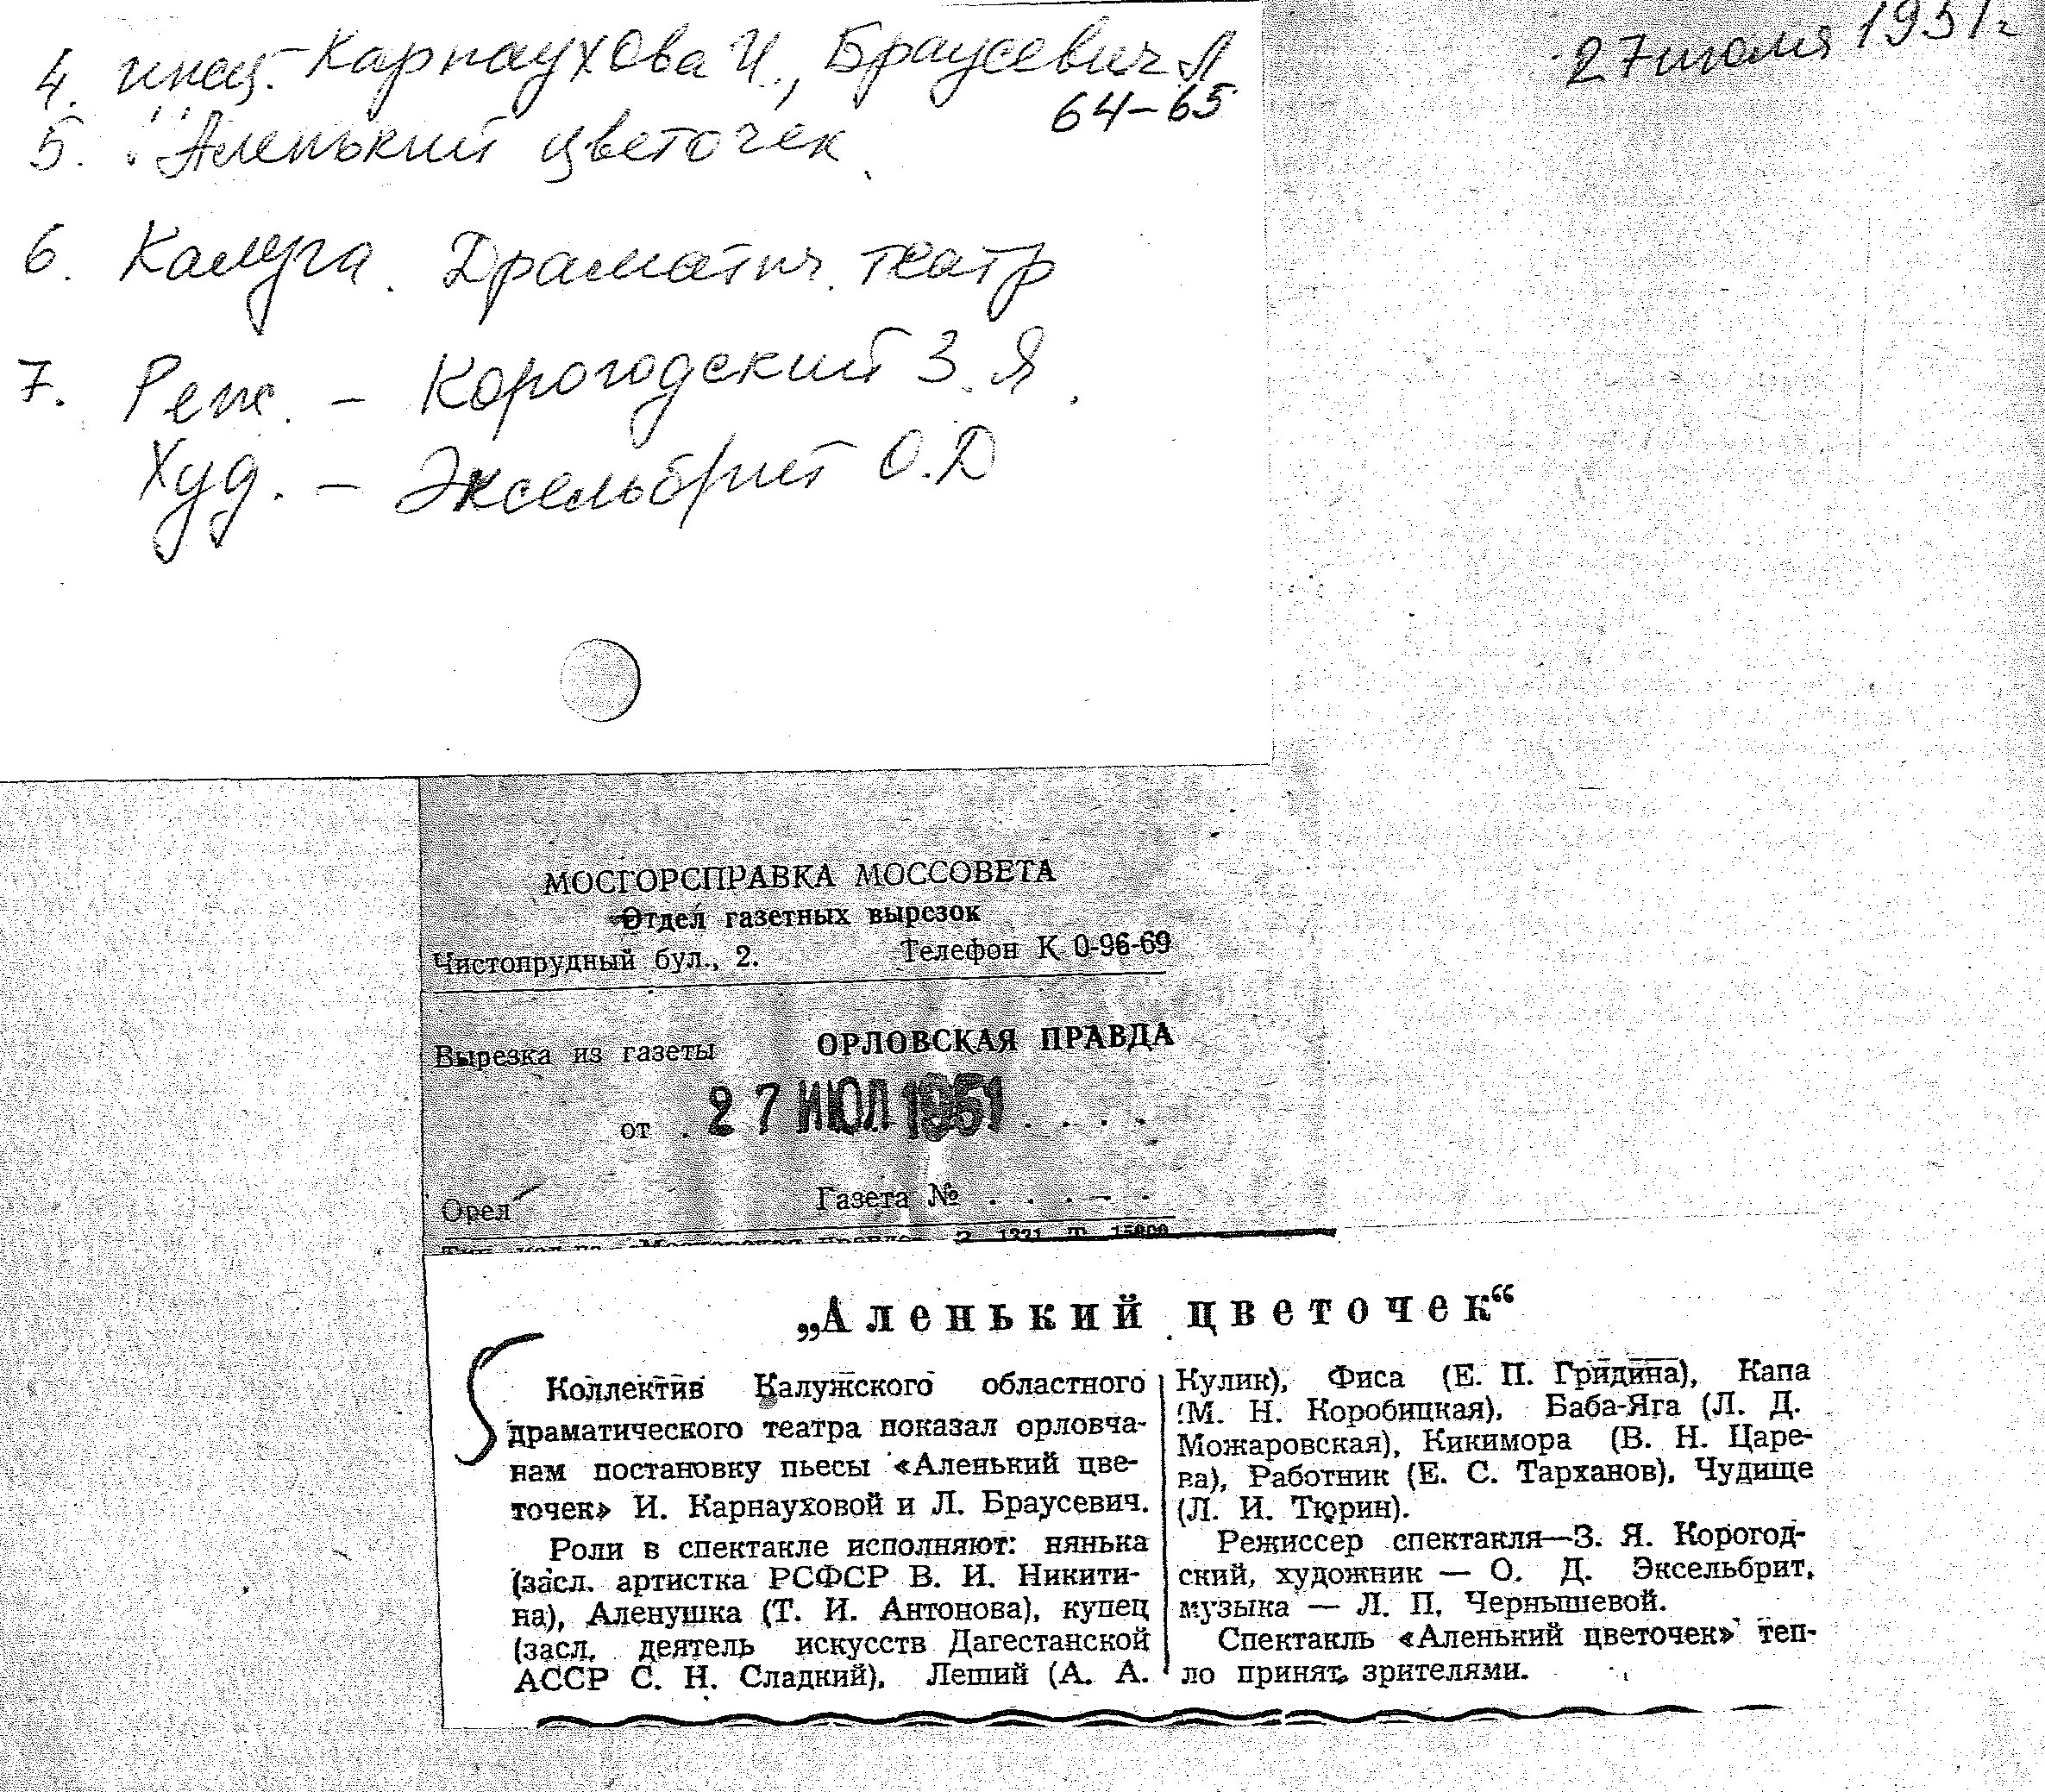 27 июля 1951 г
4. инсц. Карнаухова И., Браусевич Л
64-65
5. "Аленький цветочек
6. Калуга. Драматич. театр
7. Реж. - Корогодский З. Я.
Худ. - Эксельбрит О. Д
МОСГОРСПРАВКА МОССОВЕТА
Отдел газетных вырезок
Чистопрудный бул., 2. Телефон К 0-96-69
Вырезка из газеты ОРЛОВСКАЯ ПРАВДА
от . 27 ИЮЛ 1951 . . . .
Орел Газета № . . . . .
„Аленький цветочек“
Коллектив Калужского областного
драматического театра показал орловча-
нам постановку пьесы «Аленький цве-
точек» И. Карнауховой и Л. Браусевич.
Роли в спектакле исполняют: нянька
(засл. артистка РСФСР В. И. Никити-
на), Аленушка (Т. И. Антонова), купец
(засл. деятель искусств Дагестанской
АССР С. Н. Сладкий), Леший (А. А.
Кулик), Фиса (Е. П. Гридина), Капа
(М. Н. Коробицкая), Баба-Яга (Л. Д.
Можаровская), Кикимора (В. Н. Царе-
ва), Работник (Е. С. Тарханов), Чудище
(Л. И. Тюрин).
Режиссер спектакля—З. Я. Корогод-
ский, художник — О. Д. Эксельбрит,
музыка — Л. П. Чернышевой.
Спектакль «Аленький цветочек» теп-
ло принят зрителями.